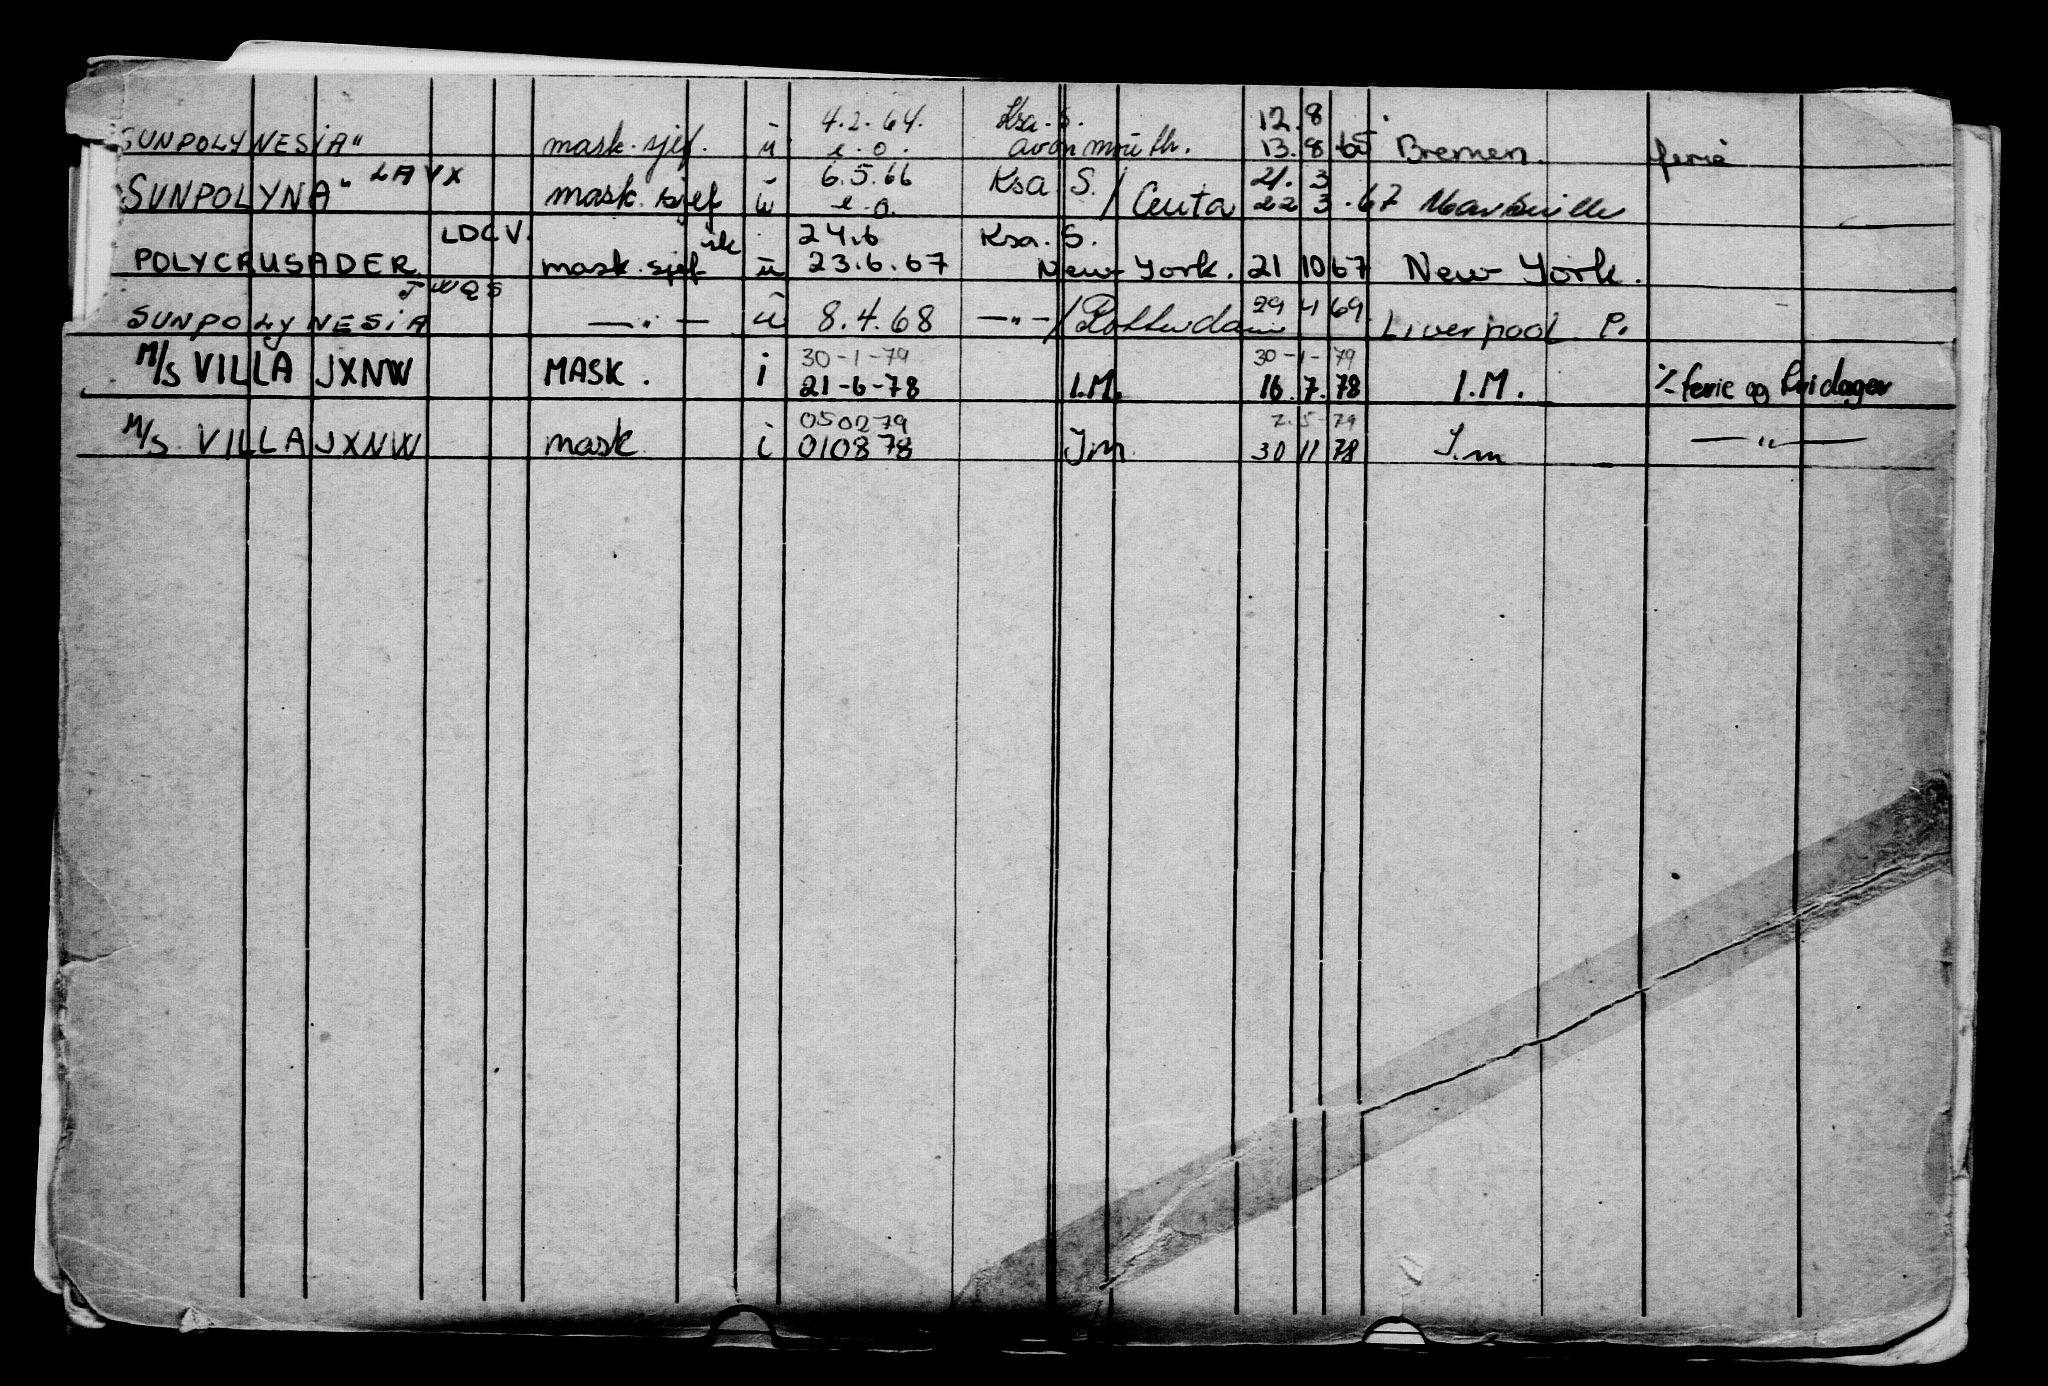 4.2.64. Ksa. S. 12.8
SUNPOLYNESIA" mask. sjef. ü e.o. avonmouth. 13.8 65 Bremen. ferie
LAVX 6.5.66 Ksa S. 21. 3
SUNPOLYNA" mask. sjef ü e.o. / Ceuta 22 3 .67 Marseille
LDCV. 24.6 Ksa. S.
POLYCRUSADER mask. sjef ü 23.6.67 New York. 21 10 67 New York.
JWQS
SUNPOLYNESIA —"— ü 8.4.68 —"—/Rotterdam 29 4 69 Liverpool. P.
30-1-79 30-1-79
M/S VILLA JXNW MASK. i 21-6-78 I.M. 16.7.78 I.M. %ferie og fridager
050279 7.5-79
M/S. VILLA JXNW mask. i 010878 I.m. 30 11 78 I.m —"—